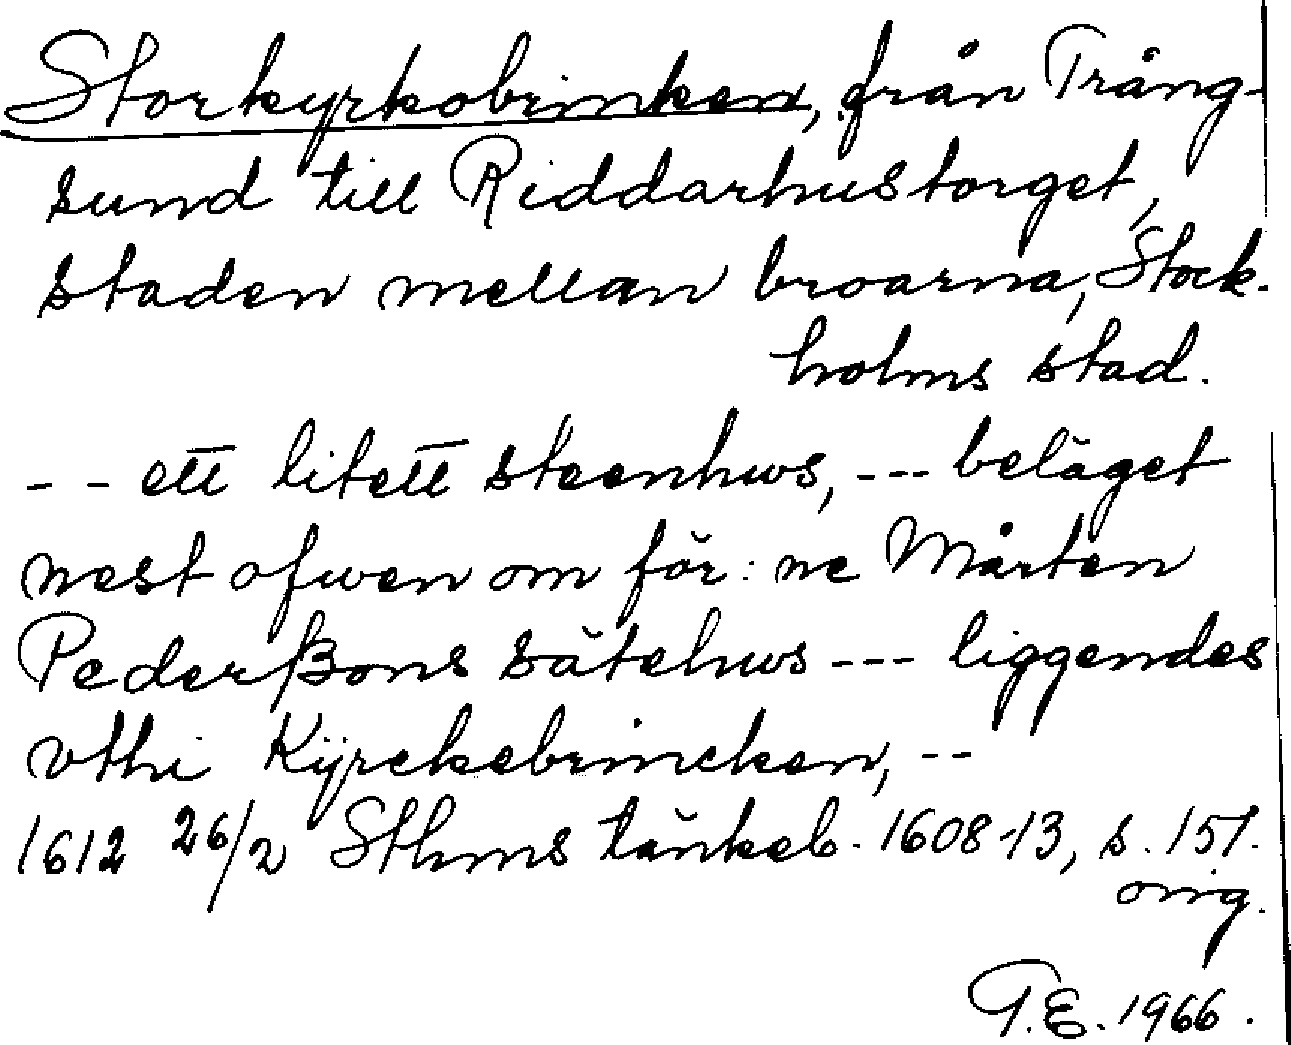 Storkyrkobrinken, från Trång-
sund till Riddarhustorget,
staden mellan broarna, Stock-
holms stad.
-- ett litett steenhws, --- beläget
nest ofwen om för: ne Mårten
Pederßons sätehws --- liggendes
vthi Kÿrckebrincken, --
1612 26/2 Sthms tänkeb. 1608-13, s. 157.
orig.
T.E. 1966.